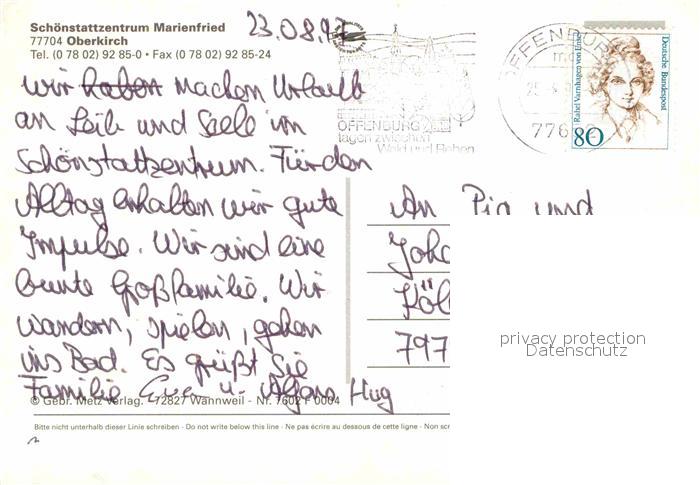 Schönstattzentrum Marienfried
77704 Oberkirch
Tel. (0 78 02) 92 85-0 • Fax (0 78 02) 92 85-24
23.08.97
wir haben machen Urlaub
an Leib und Seele im
Schönstattzentrum. Für den
Alltag erhalten wir gute
Impulse. Wir sind eine
bunte Großfamilie. Wir
wandern, spielen, gehen
ins Bad. Es grüßt Sie
Familie u. Hug
© Gebr. Metz Verlag · 72827 Wannweil - Nr. 7602 F 0004
Bitte nicht unterhalb dieser Linie schreiben - Do not write below this line - Ne pas écrire au dessous de cette ligne - Non scr
OFFENBURG
tagen zwischen
Wald und Reben
OFFENBUR
776
Rahel Varnhagen von Ense
Deutsche Bundespost
80
An Pia und
Joha
Köl
797
privacy protection
Datenschutz